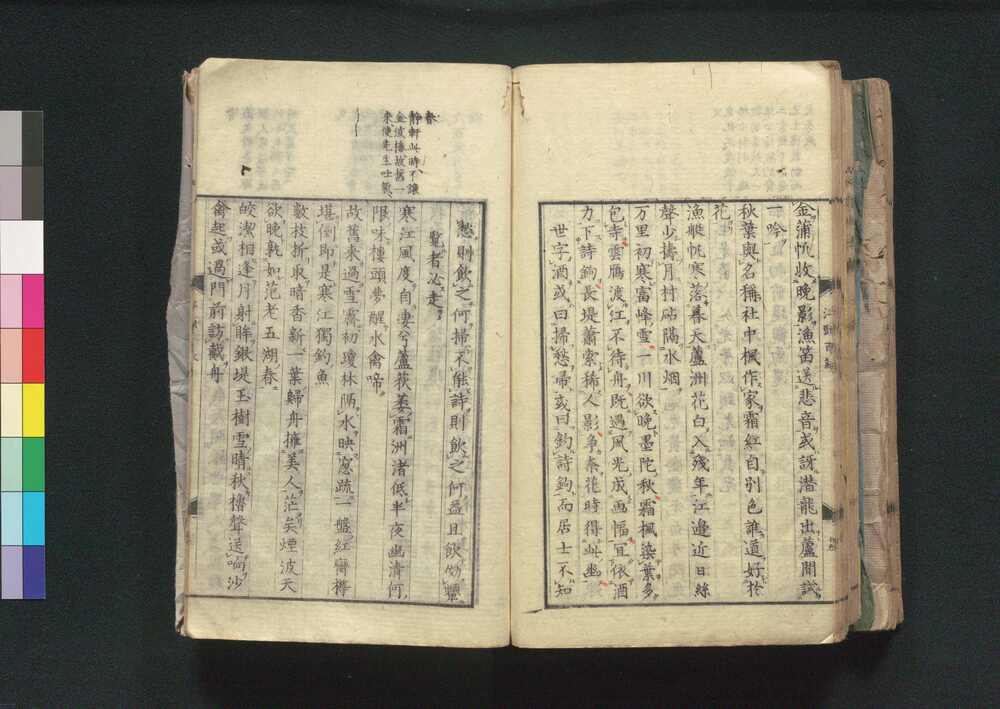 金蒲帆收晚影漁笛送悲音或訝潜龍出蘆間試
一吟
秋葉與名稱社中楓作家霜紅自別色誰道好於
花
漁艇帆寒落暮天蘆洲花白入殘年江邊近日絲
聲少擣月村砧隔水烟
万里初寒富峰雪一川欲晚墨陀秋霜楓染葉多
包寺雲鴈渡江不待舟既過風光成画幅宜依酒
力下詩鉤長堤蕭索稀人影爭奈花時得此幽
世字酒或曰掃愁帚或曰鈎詩鉤而居士不知
愁則飲之何掃不能詩則飲之何益且飲
覽者必走
寒江風度自凄兮蘆荻萎霜洲渚低半夜幽清何
限味樓頭夢醒水禽啼
故舊來過雪霽初瓊林隔水映窓疏一盤紅膾樽
堪倒即是寒江獨釣魚
數枝折取暗香新一葉歸舟擁美人茫矣煙波天
欲晚孰如范老五湖春
皎潔相逢月射眸銀堤玉樹雪晴秋櫓聲送响沙
禽起或過門前訪戴舟
春
靜軒此時不讓
金波樓故舊一
來使先生吐氣